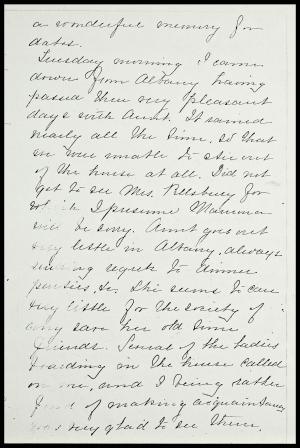 a wonderful memory for
dates.
Tuesday morning I came
down from Albany having
passed then very pleasant
days with Aunt. It rained
nearly all the time, so that
we were unable to stir out
of the house at all. Did not
get to see Mrs. Pillsbury for
which I presume Mamma
will be sorry. Aunt goes out
very little in Albany, always
sending regrets to dinner
parties, &c. She seems to care
very little for the society of
any save her old time
friends. Several of the ladies
boarding in the house called
on me, and I being rather
fond of making acquaintances
was very glad to see them.